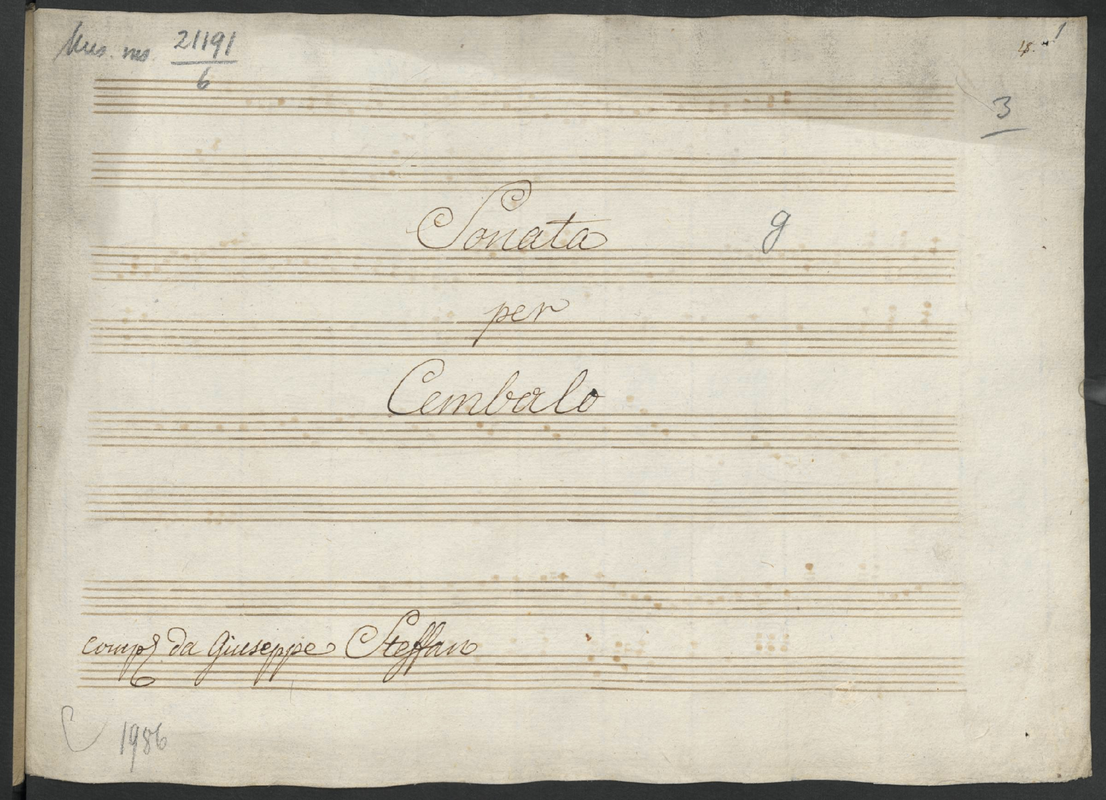 Mus. ms. 21191
6
1
3
Sonata g
per
Cembalo
comp. da Giuseppe Steffan
1986